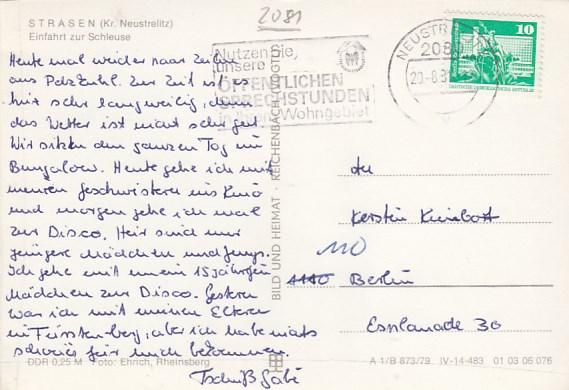 STRASEN (Kr. Neustrelitz)
Einfahrt zur Schleuse
2081
Heute mal wieder paar Zeilen
aus Pelzkuhl. Zur Zeit ist es
hier sehr langweilig, denn
das Wetter ist nicht sehr gut.
Wir sitzen den ganzen Tag im
Bungalow. Heute gehe ich mit
meinen Geschwistern ins Kino
und morgen gehe ich mal
zur Disco. Hier sind nur
jüngere Mädchen und Jungs.
Ich gehe mit einem 15 jährigen
Mädchen zur Disco. Gestern
war ich mit meinen Eltern
in Fürstenberg, aber ich habe nichts
schönes für mich bekommen.
Tschüß Gabi
DDR 0,25 M Foto: Ehrich, Rheinsberg
BILD UND HEIMAT · REICHENBACH (VOGTL)
Nutzen Sie
unsere
ÖFFENTLICHEN
SPRECHSTUNDEN
in Ihrem Wohngebiet
2080
10
DEUTSCHE DEMOKRATISCHE REPUBLIK
An
Kerstin
110
1110 Berlin
Esplanade 30
A 1/B 873/79 IV-14-483 01 03 06 076